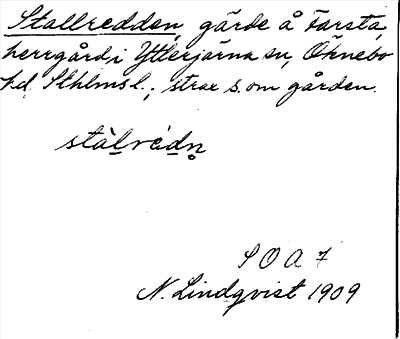 Stallredden, gärde å Farsta
herrgård, i Ytterjärna sn, Öknebo
hd Sthlms l., strax s. om gården.
stàlrèdn̥
S O A 7
N. Lindqvist 1909